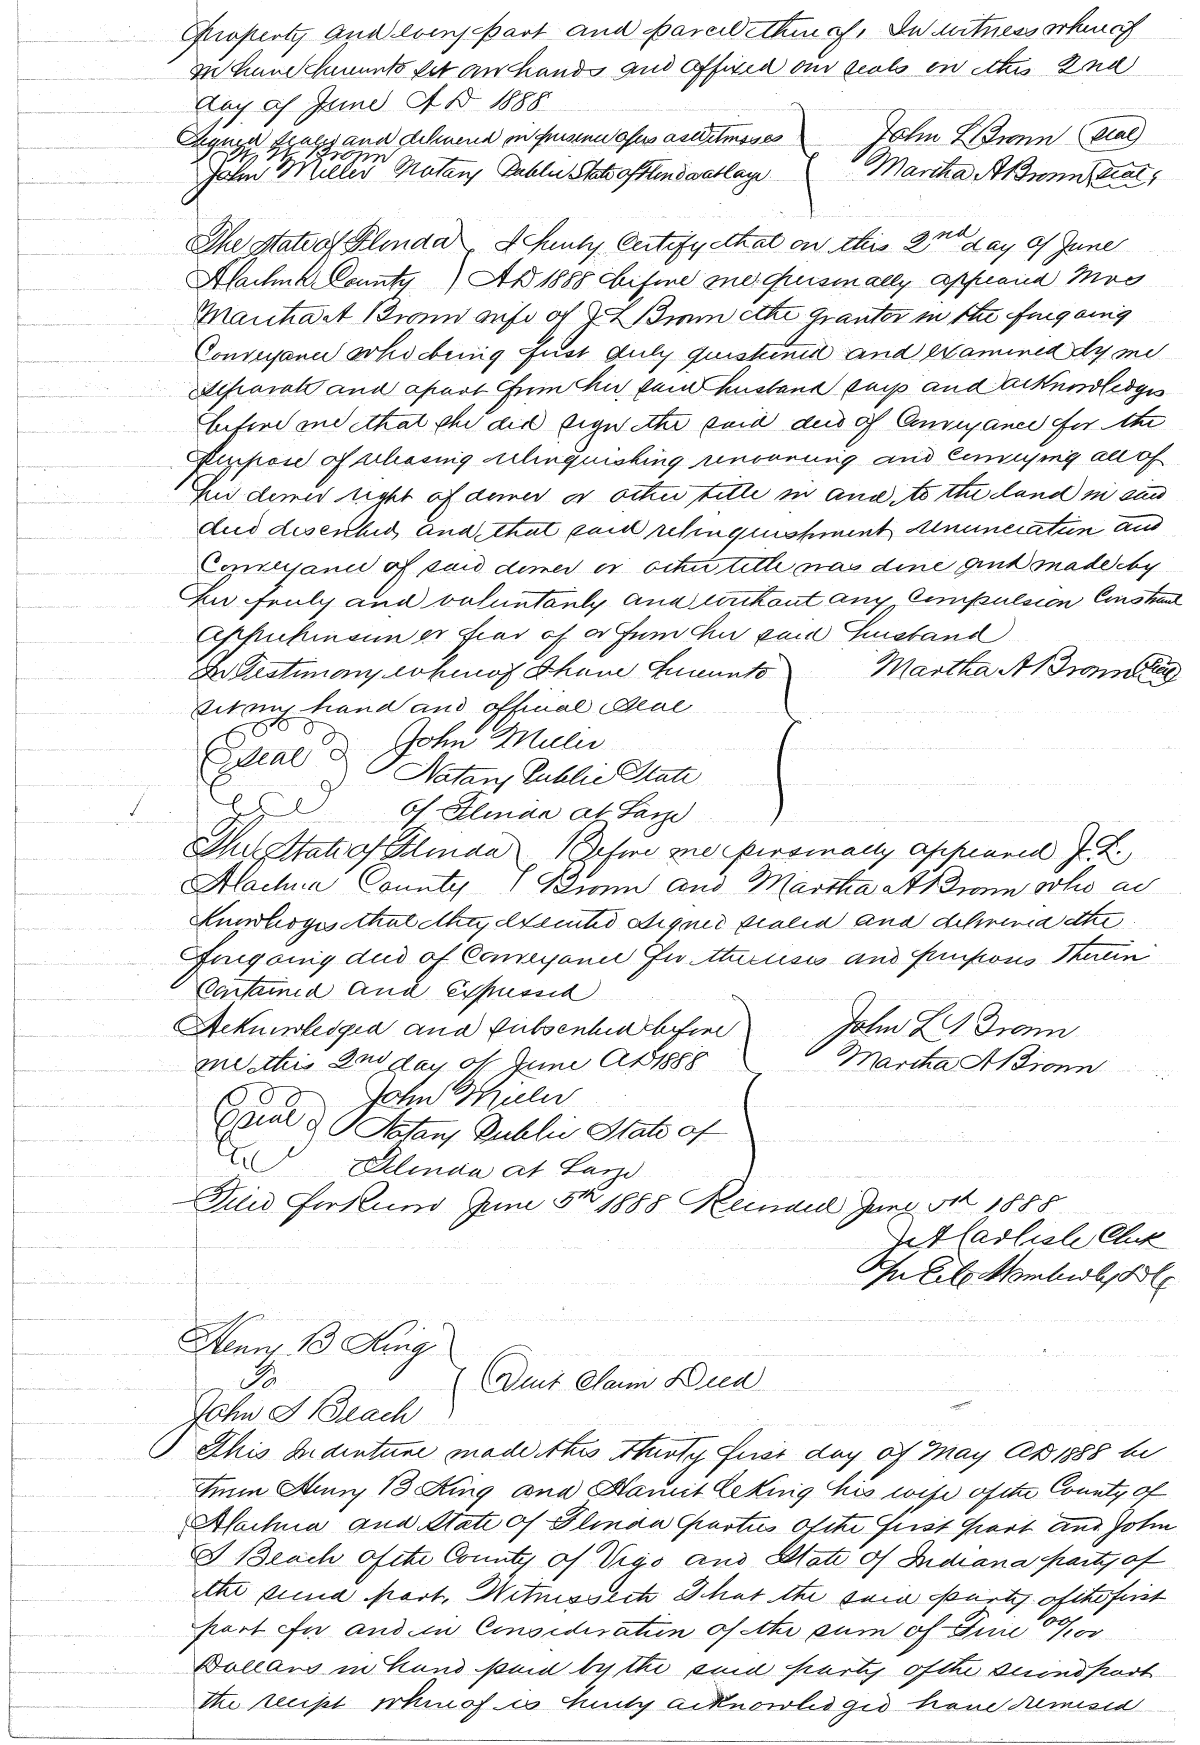 Property and every part and parcel thereof, In witness whereof
we have hereunto set our hands and affixed our seals on this 2nd
day of June A D 1888
Signed sealed and delivered in presence of us as witnesses John L Bronn (seal)
Bronn
John Miller Notary Public State of Florida at large Martha A Bronn (seal)
The State of Florida ) I hereby Certify that on this 2nd day of June
Alachua County ) A D 1888 before me personally appeared Mrs
Martha A Bronn wife of J. L Bronn the Grantor in the foregoing
Conveyance who being first duly questioned and examined by me
separate and apart from her said husband says and acknowledges
before me that she did sign the said deed of Conveyance for the
Purpose of releasing relinquishing renouncing and Conveying all of
her dower right of dower or other title in and to the land in said
deed described and that said relinquishment renunciation and
Conveyance of said dower or other title was done and made by
her freely and voluntarily and without any Compulsion Constraint
Apprehension or fear of or from her said husband
In Testimony whereof I have hereunto Martha A Bronn (seal)
set my hand and official seal
(Seal) John Miller
Notary Public State
of Florida at Large
The State of Florida ) Before me personally appeared J. L.
Alachua County ) Bronn and Martha A Bronn who ac
knowledges that they executed signed sealed and delivered the
foregoing deed of Conveyance for the uses and purposes therein
Contained and expressed
Acknowledged and subscribed before John L Bronn
me this 2nd day of June A D 1888 Martha A Bronn
(Seal) John Miller
Notary Public State of
Florida at Large
Filed for Record June 5th 1888 Recorded June 5th 1888
Carlisle Clerk
Henry B King
To
Quit Claim Deed
John S Beach
This Indenture made this thirty first day of May A D 1888 be
tween Henry B King and Harriet C King his wife of the County of
Alachua and State of Florida parties of the first part and John
S Beach of the County of Vigo and State of Indiana party of
the second part, Witnesseth That the said party of the first
part for and in Consideration of the sum of Five 00/100
Dollars in hand paid by the said party of the second part
the receipt whereof is hereby acknowledged have remised